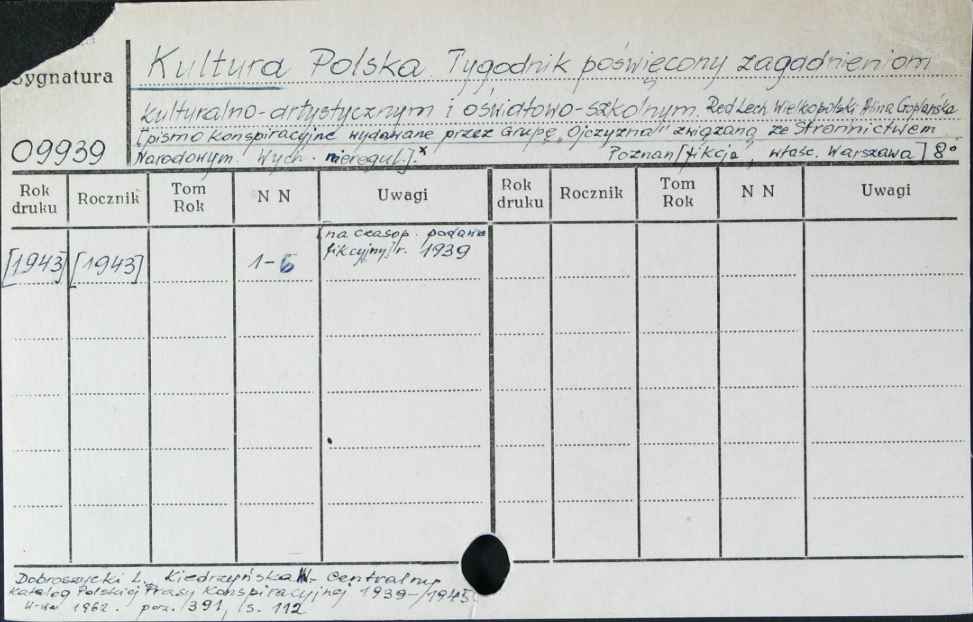 Sygnatura
Kultura Polska. Tygodnik poświęcony zagadnieniom
kulturalno-artystycznym i oświatowo-szkolnym. Red Lech Wielkopolski, Alina Goplańska
[pismo konspiracyjne wydawane przez Grupę „Ojczyzna" związaną ze Stronnictwem
09939
Narodowym. Wych. nieregul.].x Poznań [fikcja, właśc. Warszawa] 8°
Rok druku Rocznik Tom Rok N N Uwagi Rok druku Rocznik Tom Rok N N Uwagi
[na czasop. podano
[1943] [1943] 1-6 fikcyjny] r. 1939
Dobroszycki L., Kiedrzyńska W. Centralny
Katalog Polskiej Prasy Konspiracyjnej 1939-/1945
W-wa 1962. poz. 391, s. 112